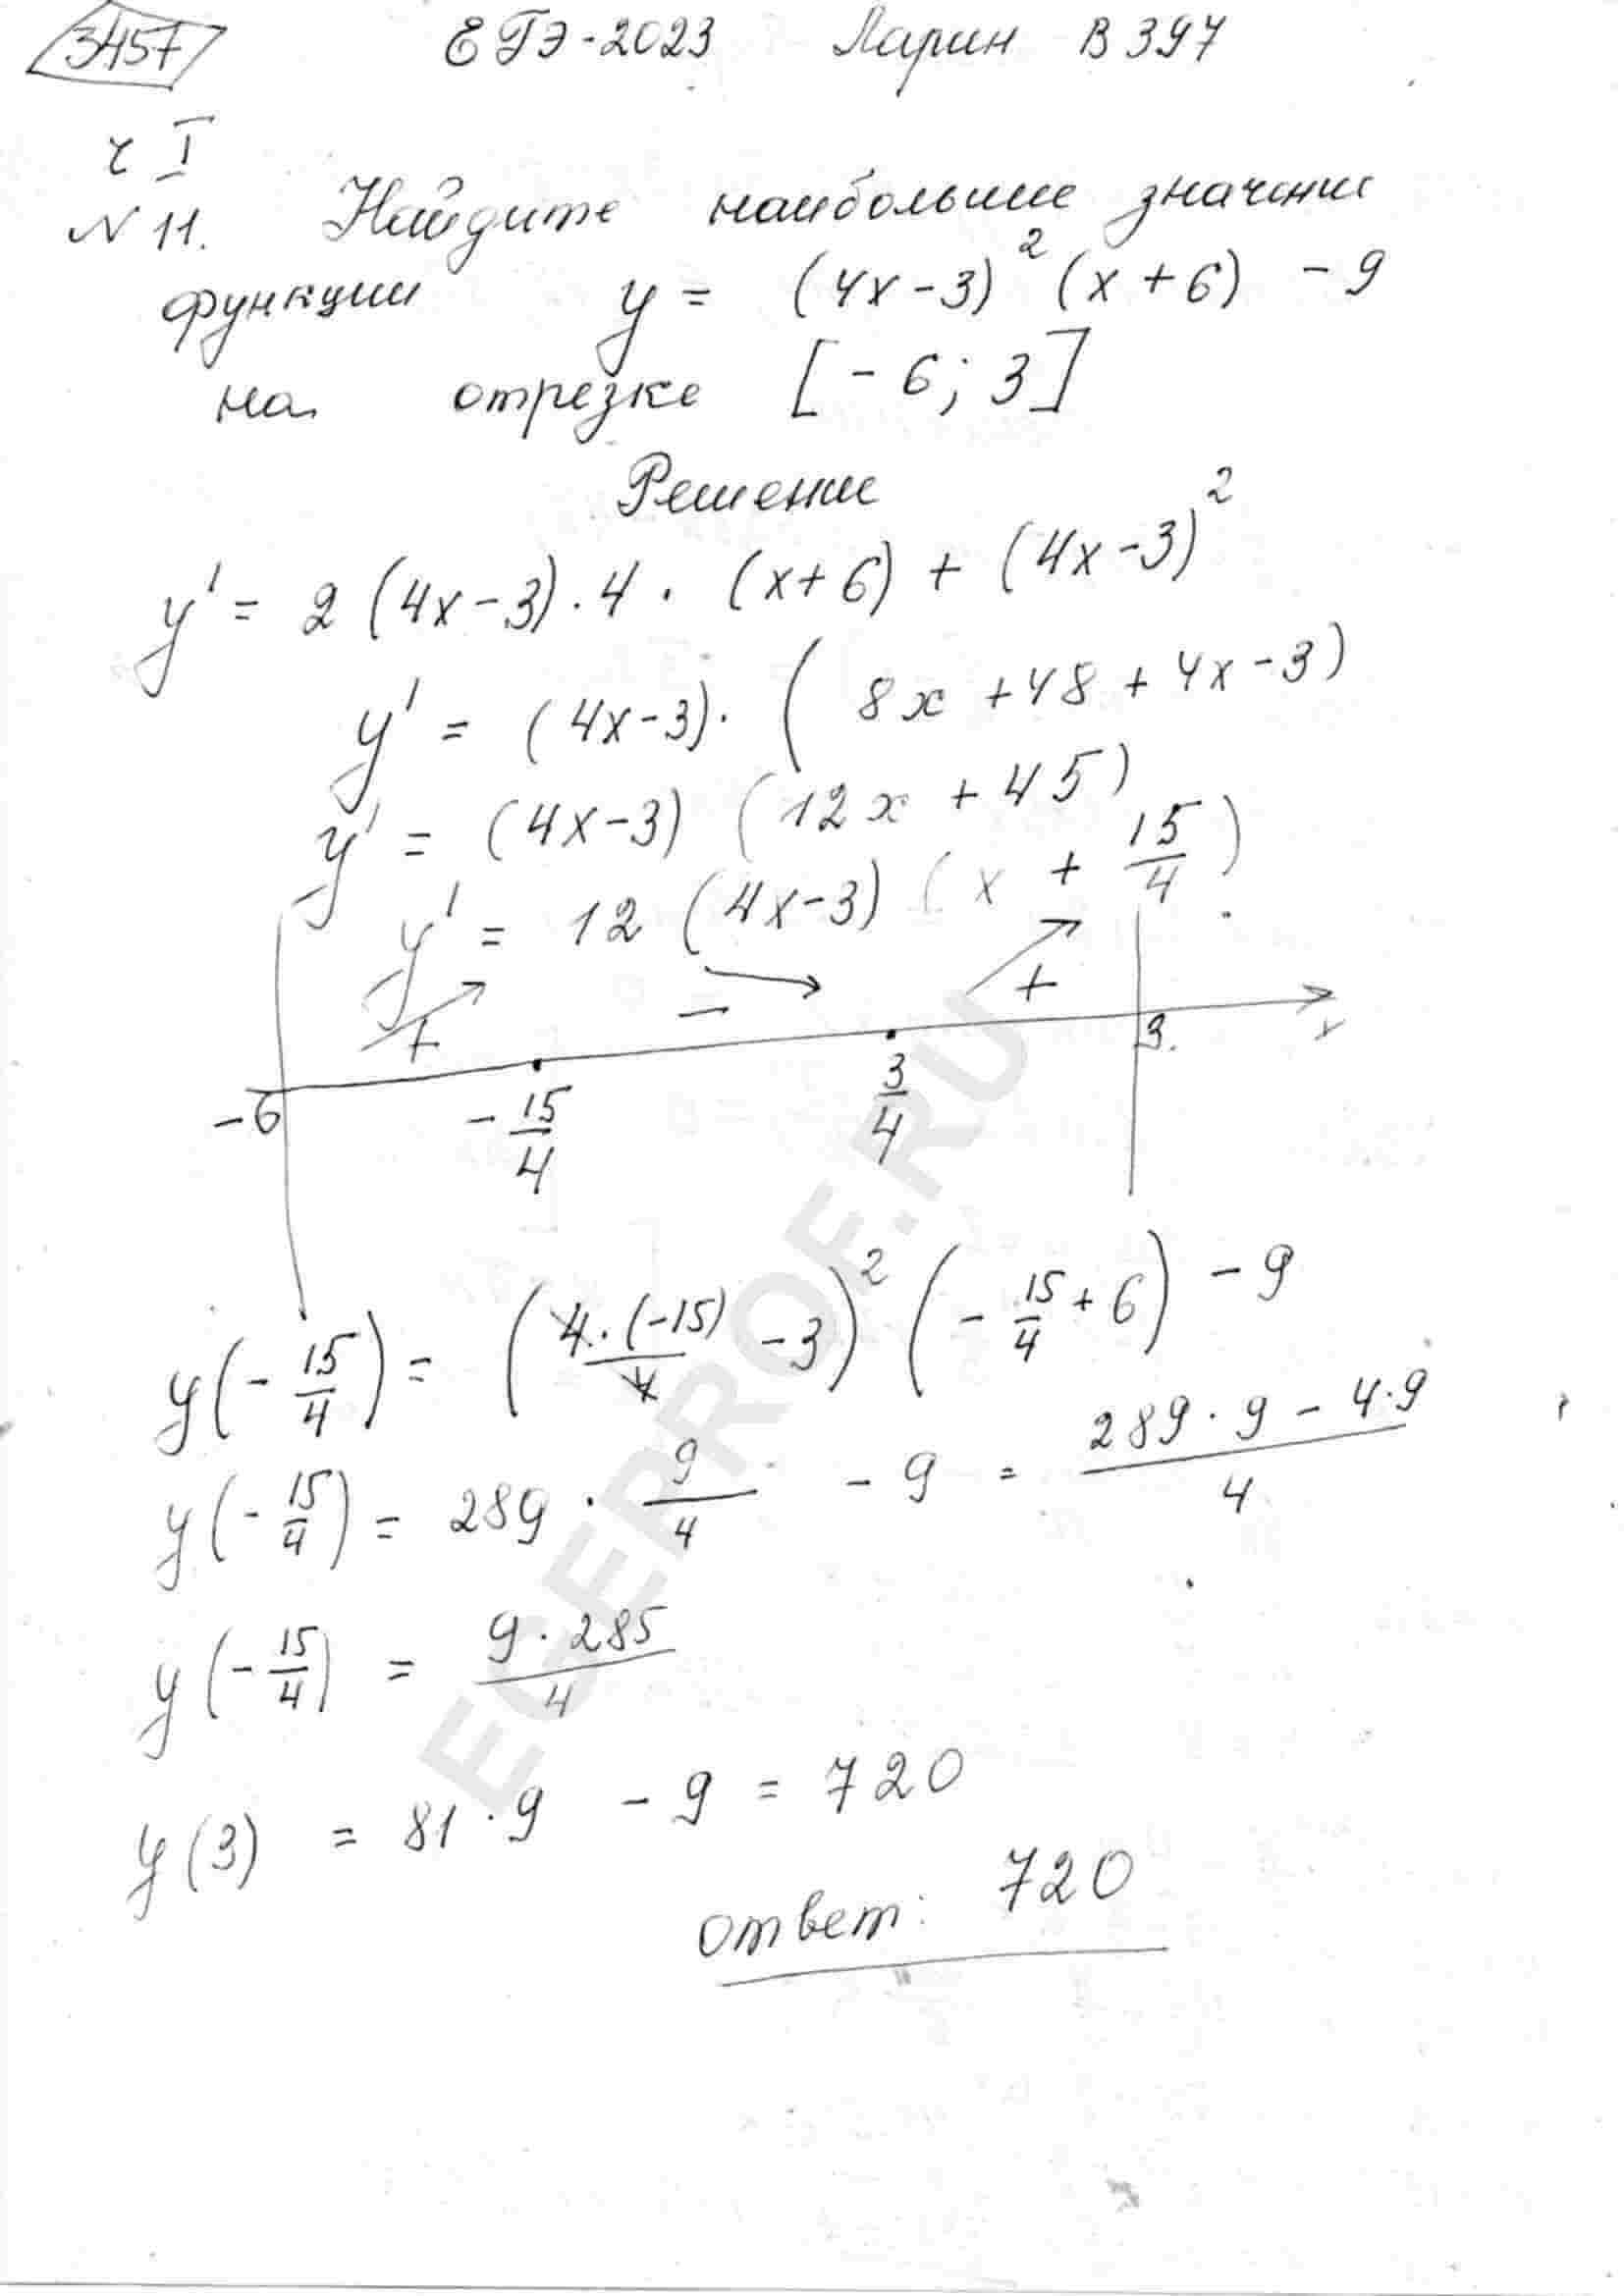 3457 ЕГЭ-2023 Ларин В 397
ч I
N 11. Найдите наибольшее значение
функции y = (4x-3)² (x+6) - 9
на отрезке [-6; 3]
Решение
y' = 2(4x-3)·4·(x+6) + (4x-3)²
y' = (4x-3)·(8x+48+4x-3)
y' = (4x-3) (12x+45)
y' = 12 (4x-3) (x + 15/4)
+ - +
-6 -15/4 3/4 3 x
y(-15/4) = (4·(-15)/4 - 3)² (-15/4 + 6) - 9
y(-15/4) = 289 · 9/4 - 9 = 289·9 - 4·9/4
y(-15/4) = 9·285/4
y(3) = 81·9 - 9 = 720
Ответ: 720
EGEPROF.RU